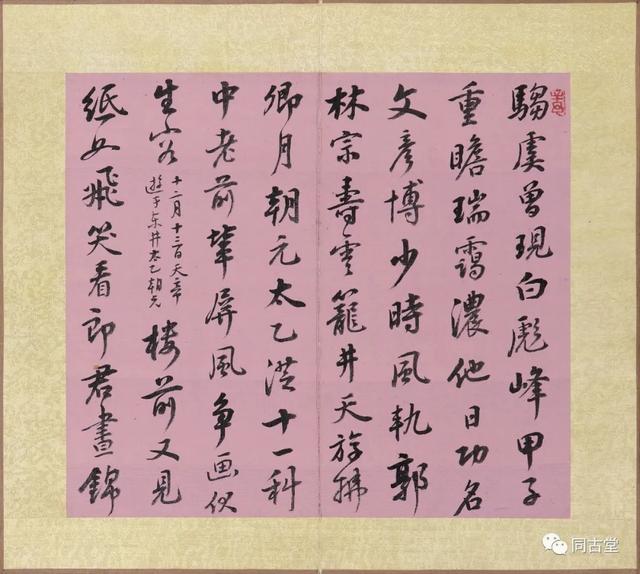 騶虞曾現白彪峰甲子
重瞻瑞靄濃他日功名
文彦博少時風軌郭
林宗壽雲籠井天游
卿月朝元太乙十一科
中老前輩屏風争画似
生容
十二月十三日天帝
遊于東井太乙朝元
樓前又見
紙如飛笑看郎君晝錦
同古堂